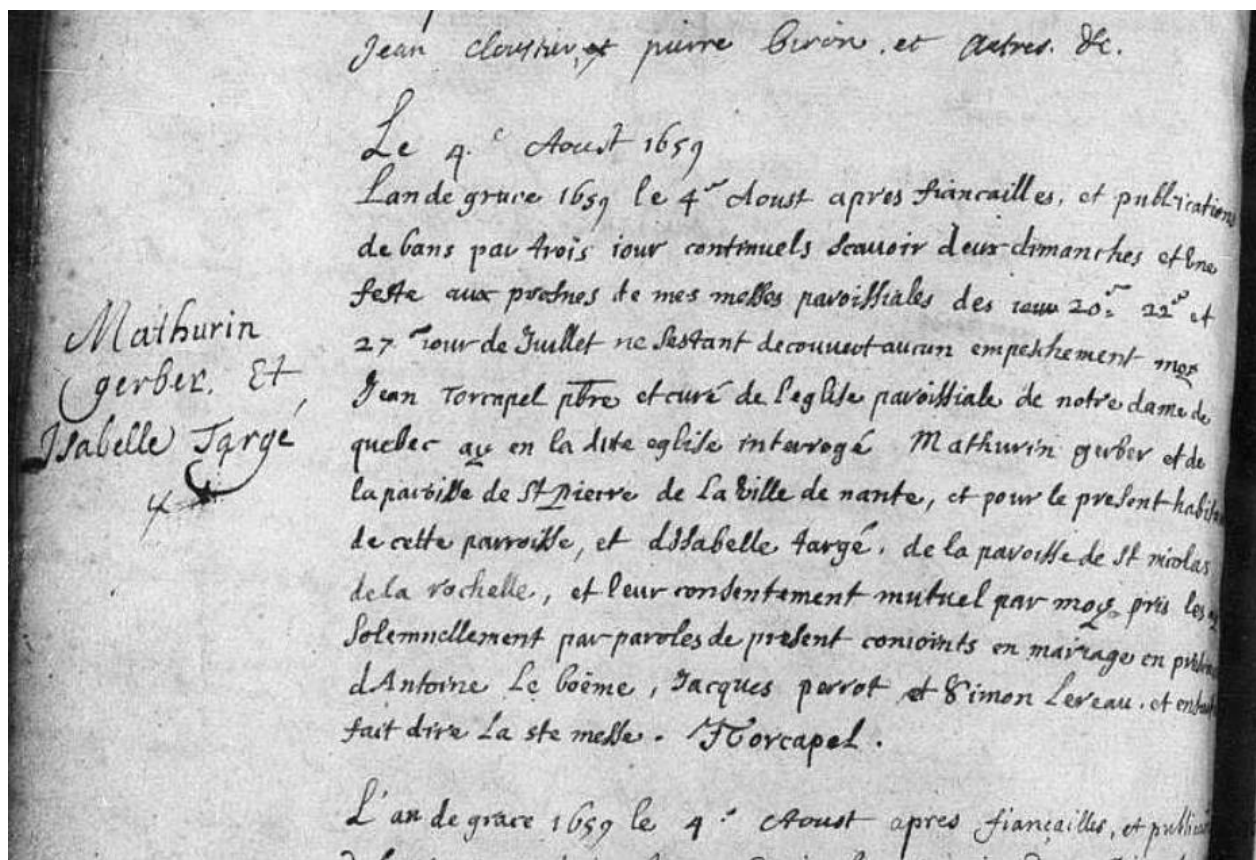 Jean Cloustier, et pierre biron. et autres. &c.
Le 4.e Aoust 1659
Lan de grace 1659 le 4e Aoust apres fiancailles, et publications
de bans par trois iour continuels scauoir deux dimanches et Vne
feste aux prosnes de mes messes paroissiales des 20e 22e et
27e iour de Juillet ne sestant decouuert aucun empeschement moy
Jean Torcapel pbre et curé de l'eglise paroissiale de notre dame de
quebec ay en la dite eglise interrogé Mathurin gerber et de
la paroisse de St Pierre de La Ville de nante, et pour le present
de cette parroisse, et disabelle targé, de la paroisse de St nicolas
de la rochelle, et leur consentement mutuel par moy pris les
solemnellement par paroles de present conioints en mariage en
dAntoine Le boëme, Jacques perrot et Simon Lereau. et
fait dire La ste messe. JTorcapel.
Mathurin
gerber. Et
Isabelle Targé
L'an de grace 1659 le 4.e Aoust apres fiançailles, et